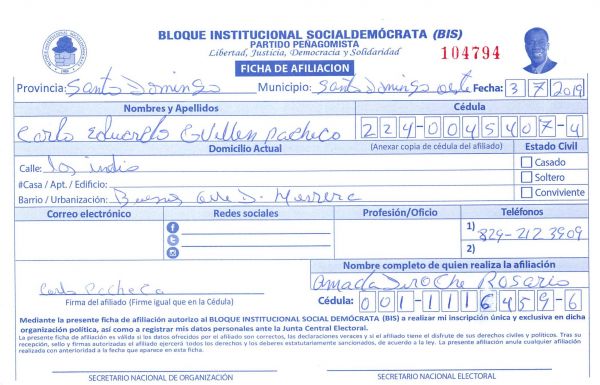 BLOQUE INSTITUCIONAL SOCIALDEMÓCRATA (BIS)
PARTIDO PEÑAGOMISTA
Libertad, Justicia, Democracia y Solidaridad
104794
FICHA DE AFILIACION
Provincia: Santo Domingo Municipio: Santo Domingo oeste Fecha: 3 7 2019
Nombres y Apellidos Cédula
Carlo Eduardo Guillen Pacheco 224-0045407-4
Domicilio Actual (Anexar copia de cédula del afiliado) Estado Civil
Calle: los indio Casado
#Casa / Apt. / Edificio: Soltero
Barrio / Urbanización: Buenos D. Herrera Conviviente
Correo electrónico Redes sociales Profesión/Oficio Teléfonos
1) 829-212 3909
2)
Nombre completo de quien realiza la afiliación
Carlo Pacheca Amada Diroche Rosario
Firma del afiliado (Firme igual que en la Cédula) Cédula: 001-1116459-6
Mediante la presente ficha de afiliación autorizo al BLOQUE INSTITUCIONAL SOCIAL DEMÓCRATA (BIS) a realizar mi inscripción única y exclusiva en dicha
organización política, así como a registrar mis datos personales ante la Junta Central Electoral.
La presente ficha de afiliación es válida si los datos ofrecidos por el afiliado son correctos, las declaraciones veraces y si el afiliado tiene el disfrute de sus derechos civiles y políticos. Tras su
recepción, sello y firmas autorizadas el afiliado ejercerá todos los derechos y los deberes estatutariamente sancionados, de acuerdo a la ley. La presente afiliación anula cualquier afiliación
realizada con anterioridad a la fecha que aparece en esta ficha.
SECRETARIO NACIONAL DE ORGANIZACIÓN SECRETARIO NACIONAL ELECTORAL